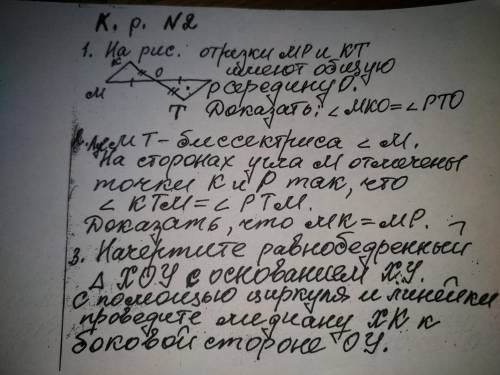 К. р. №2
1. На рис. отрезки MP и KT
имеют общую
середину O.
Доказать: ∠MKO=∠PTO
K
O
M
P
T
2. Луч MT-биссектриса ∠M.
На сторонах угла M отмечены
точки K и P так, что
∠KTM=∠PTM.
Доказать, что MK=MP.
3. Начертите равнобедренный
Δ XOY с основанием XY.
С помощью циркуля и линейки
проведите медиану XK к
боковой стороне OY.